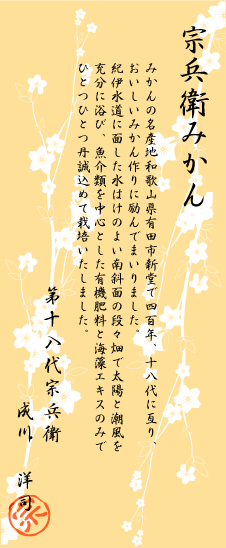 宗兵衛みかん
みかんの名産地和歌山県有田市新堂で四百年、十八代に亙り、
おいしいみかん作りに励んでまいりました。
紀伊水道に面した水はけのよい南斜面の段々畑で太陽と潮風を
充分に浴び、魚介類を中心とした有機肥料と海藻エキスのみで
ひとつひとつ丹誠込めて栽培いたしました。
第十八代宗兵衛
成川 洋司